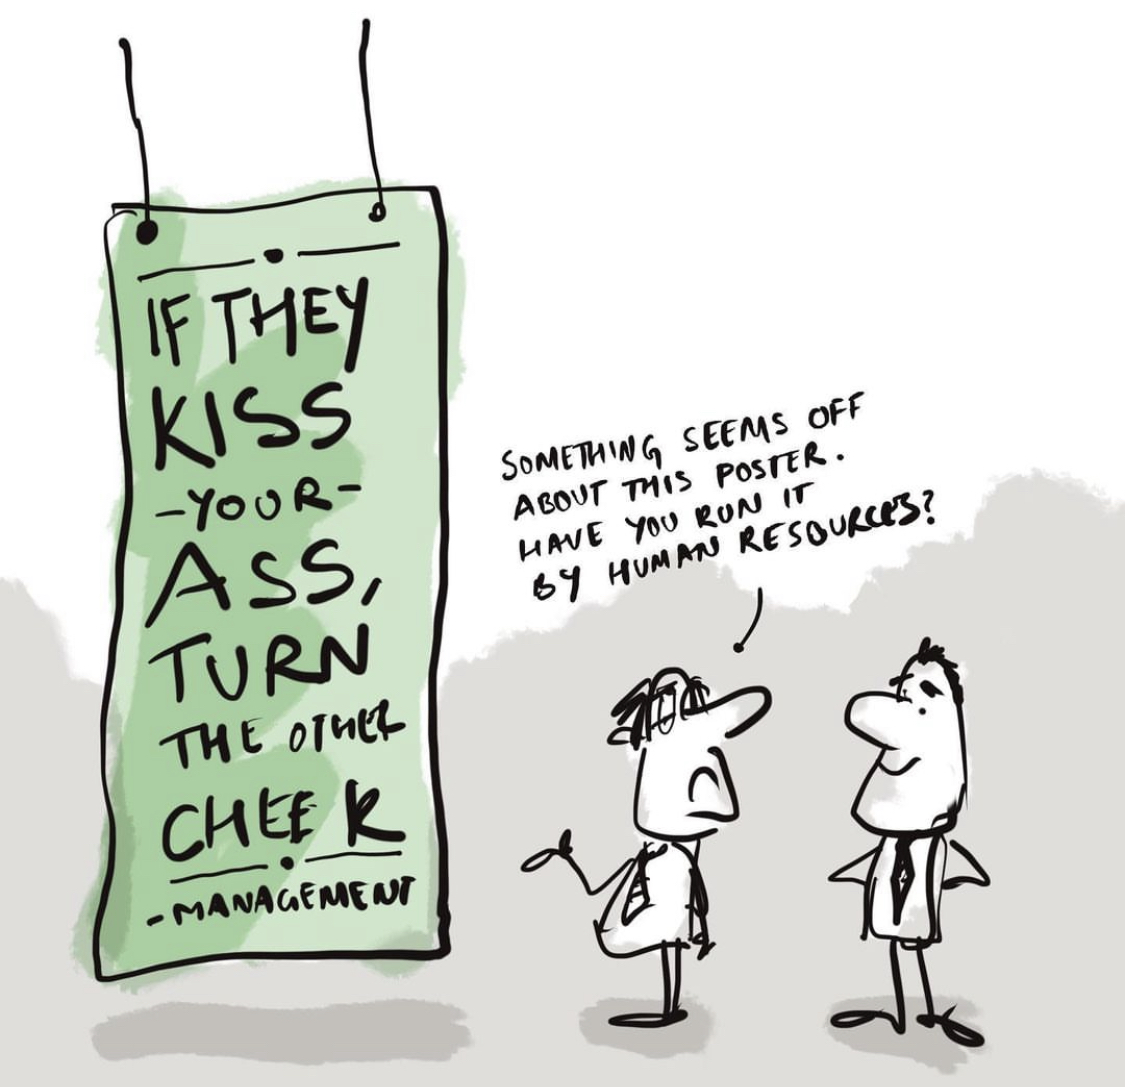 IF THEY
KISS
-YOUR-
ASS,
TURN
THE OTHER
CHEEK
-MANAGEMENT
SOMETHING SEEMS OFF
ABOUT THIS POSTER.
HAVE YOU RUN IT
BY HUMAN RESOURCES?